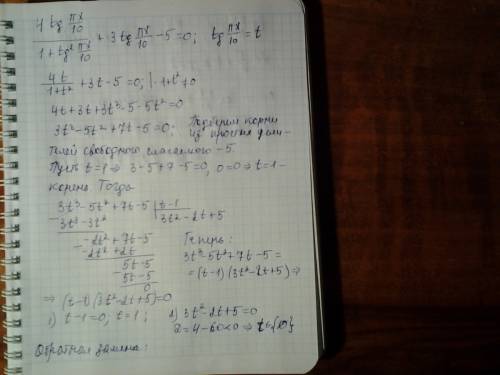 4 tg πx/10 / 1+tg² πx/10 + 3tg πx/10 - 5 = 0; tg πx/10 = t
4t/1+t² + 3t - 5 = 0; | 1+t² ≠ 0
4t + 3t + 3t³ - 5 - 5t² = 0
3t³ - 5t² + 7t - 5 = 0; Подберем корни
из простых дели-
телей свободного слагаемого -5.
Пусть t = 1 ⇒ 3 - 5 + 7 - 5 = 0, 0 = 0 ⇒ t = 1 -
корень. Тогда
3t³ - 5t² + 7t - 5 | t - 1
- 3t³ - 3t² 3t² - 2t + 5
-2t² + 7t - 5 Теперь:
- -2t² + 2t 3t³ - 5t² + 7t - 5 =
5t - 5 = (t-1)(3t² - 2t + 5) ⇒
- 5t - 5
0
⇒ (t-1)(3t² - 2t + 5) = 0
1) t - 1 = 0, t = 1; 2) 3t² - 2t + 5 = 0
D = 4 - 60 < 0 ⇒ t = {∅}
Обратная замена: